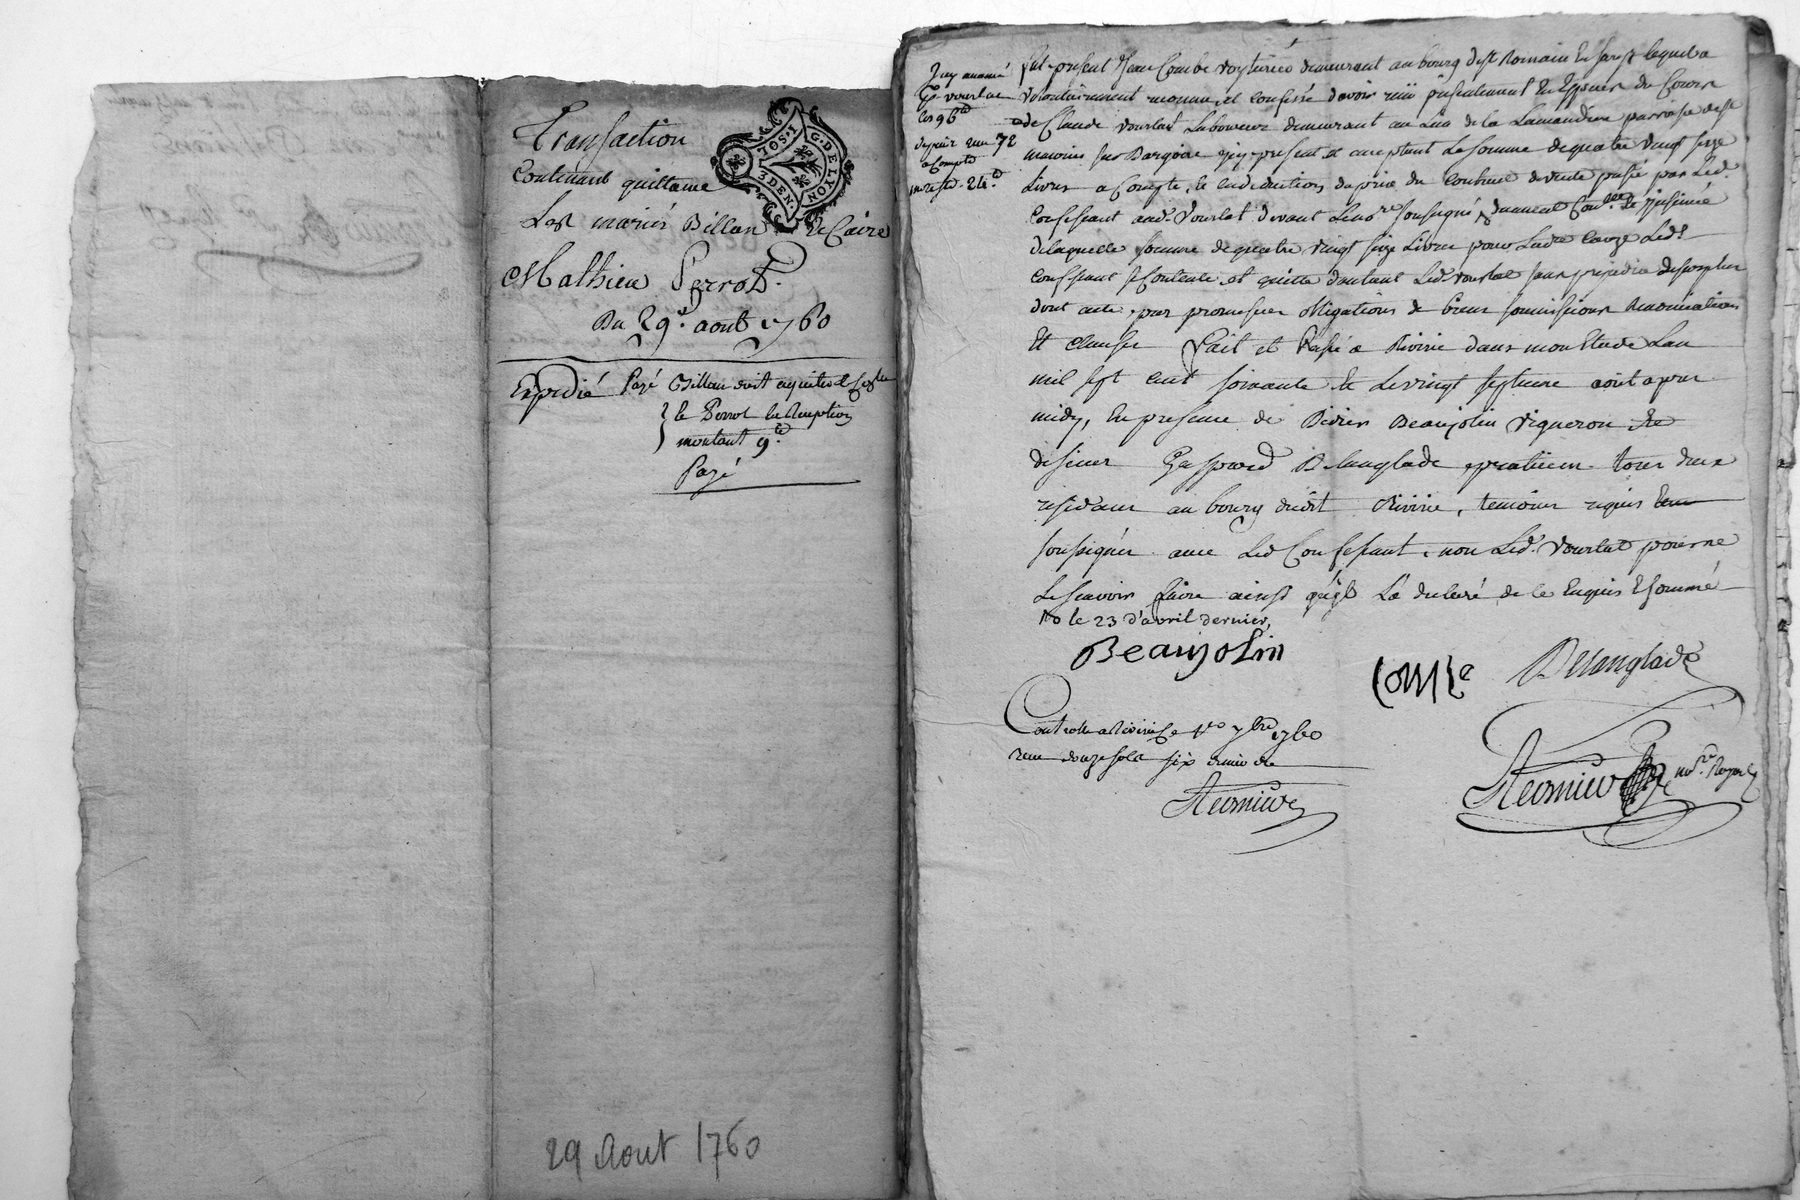 Transaction
Contenant quittance
Les mariés Billan et Caire
G. DE LYON
1. SOL
3 DEN.
Mathieu Perrot.
Du 29e. aout 1760
Expedié Payé Billan doit
le Perrot la Reception
montant 9tt.
Payé
29 Aout 1760
les 96tt
72
a Compte
reste 24tt
fut present Jean Combe voyturier demeurant au bourg de st Romain En Jarest lequel a
volontairement reconnu et confessé d'avoir reçu presentement En Especes du Cours
de Claude vourlat Laboureur demeurant au Lieu de la Lamandiere parroisse de st
sur Dargoire icy present et acceptant La somme de quatre vingt seize
Livres a Compte, et en deduction du prix du contract de vente passé par Led.
Confessant aud. Vourlat devant Le nore soussigné
de laquelle somme de quatre vingt seize Livres pour Ladre cause Led.
confessant se Contente et quitte d'autant Led. vourlat sans prejudice du surplus
dont acte, par promesses obligations de biens soumissions Renonciations
Et clauses Fait et Passé a Riverie dans mon Etude Lan
mil sept cent soixante Et Le vingt septieme aoüt apres
midy, En presence de Beaujolin Vigneron Et de
sieur Gaspard Delanglade praticien tous deux
residans au bourg dudit Riverie, temoins requis
soussignés avec Led Confessant, non Led. Vourlat pour ne
Le scavoir faire ainsy qu'il L'a declaré de ce Enquis Et sommé
le 23 d'avril dernier,
Beaujolin
Combe Delanglade
Controllé a Riverie Le 1er 7bre 1760
reçu douze sols six deniers
nore. Royal